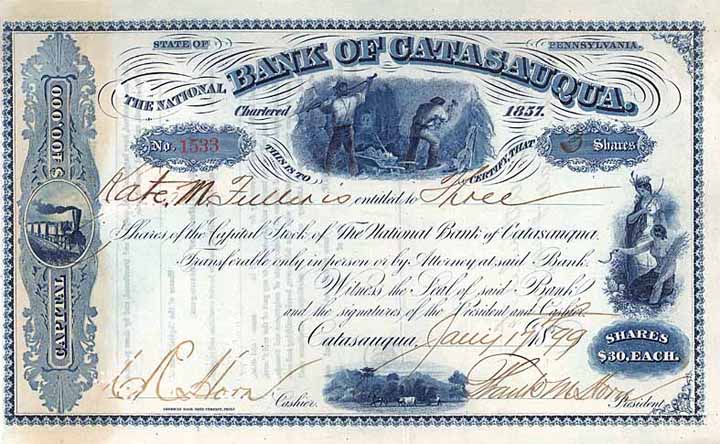 STATE OF PENNSYLVANIA.
THE NATIONAL BANK OF CATASAUQUA.
Chartered 1857.
No. 1533
THIS IS TO CERTIFY, THAT
3 Shares
Kate M Fuller is entitled to Three
Shares of the Capital Stock of The National Bank of Catasauqua.
Transferable only in person or by Attorney at said Bank.
Witness the Seal of said Bank
and the signatures of the President and Cashier
Catasauqua, Jany 1899
CAPITAL $400,000
SHARES
$30, EACH.
Horn Cashier.
Frank M Horn President
AMERICAN BANK NOTE COMPANY, PHILA.